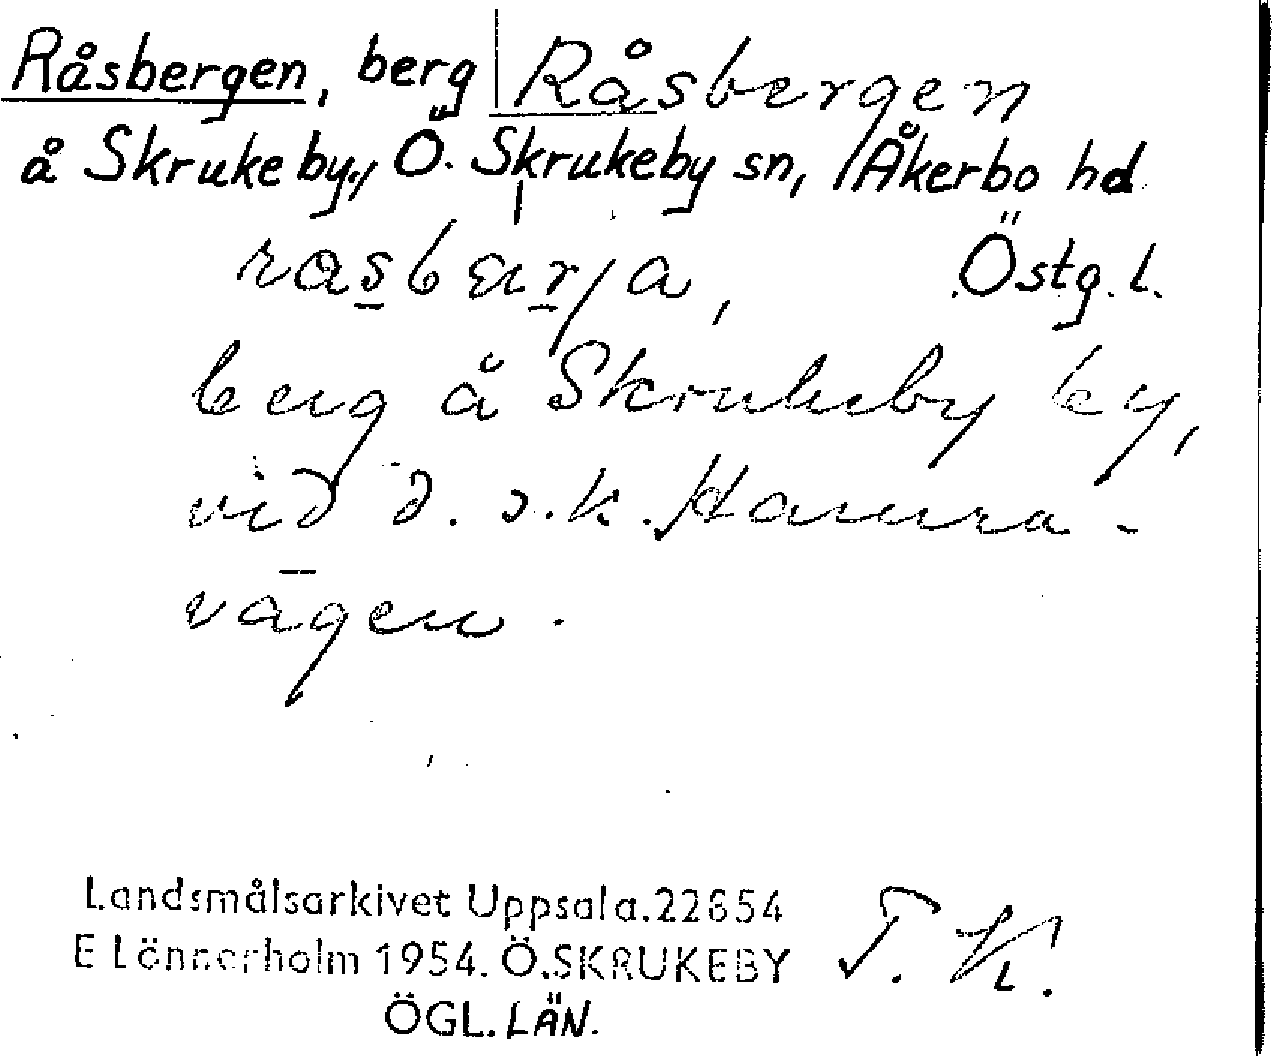 Råsbergen, berg Råsbergen
å Skrukeby, Ö. Skrukeby sn, Åkerbo hd
Östg. l.
berg å Skrukeby by,
vid d. s.k. Hamra-
vägen.
Landsmålsarkivet Uppsala. 22654
E Lönnerholm 1954. Ö. SKRUKEBY
ÖGL. LÄN.
T. K.